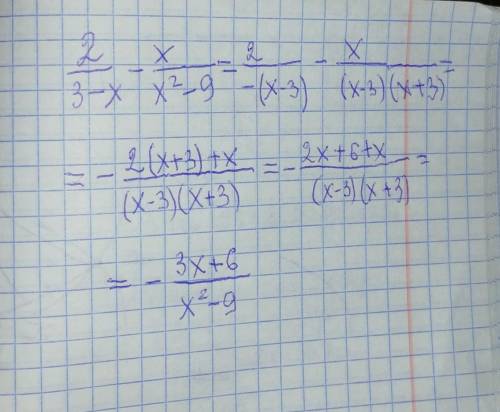 2/(3-x) - x/(x²-9) = 2/(-(x-3)) - x/((x-3)(x+3)) =
= - (2(x+3)+x)/((x-3)(x+3)) = - (2x+6+x)/((x-3)(x+3)) =
= - (3x+6)/(x²-9)